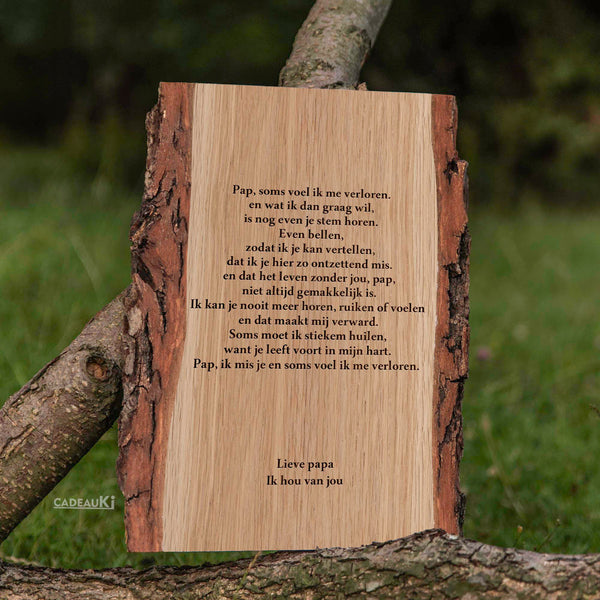 Pap, soms voel ik me verloren.
en wat ik dan graag wil,
is nog even je stem horen.
Even bellen,
zodat ik je kan vertellen,
dat ik je hier zo ontzettend mis.
en dat het leven zonder jou, pap,
niet altijd gemakkelijk is.
Ik kan je nooit meer horen, ruiken of voelen
en dat maakt mij verward.
Soms moet ik stiekem huilen,
want je leeft voort in mijn hart.
Pap, ik mis je en soms voel ik me verloren.
Lieve papa
Ik hou van jou
CADEAUKi